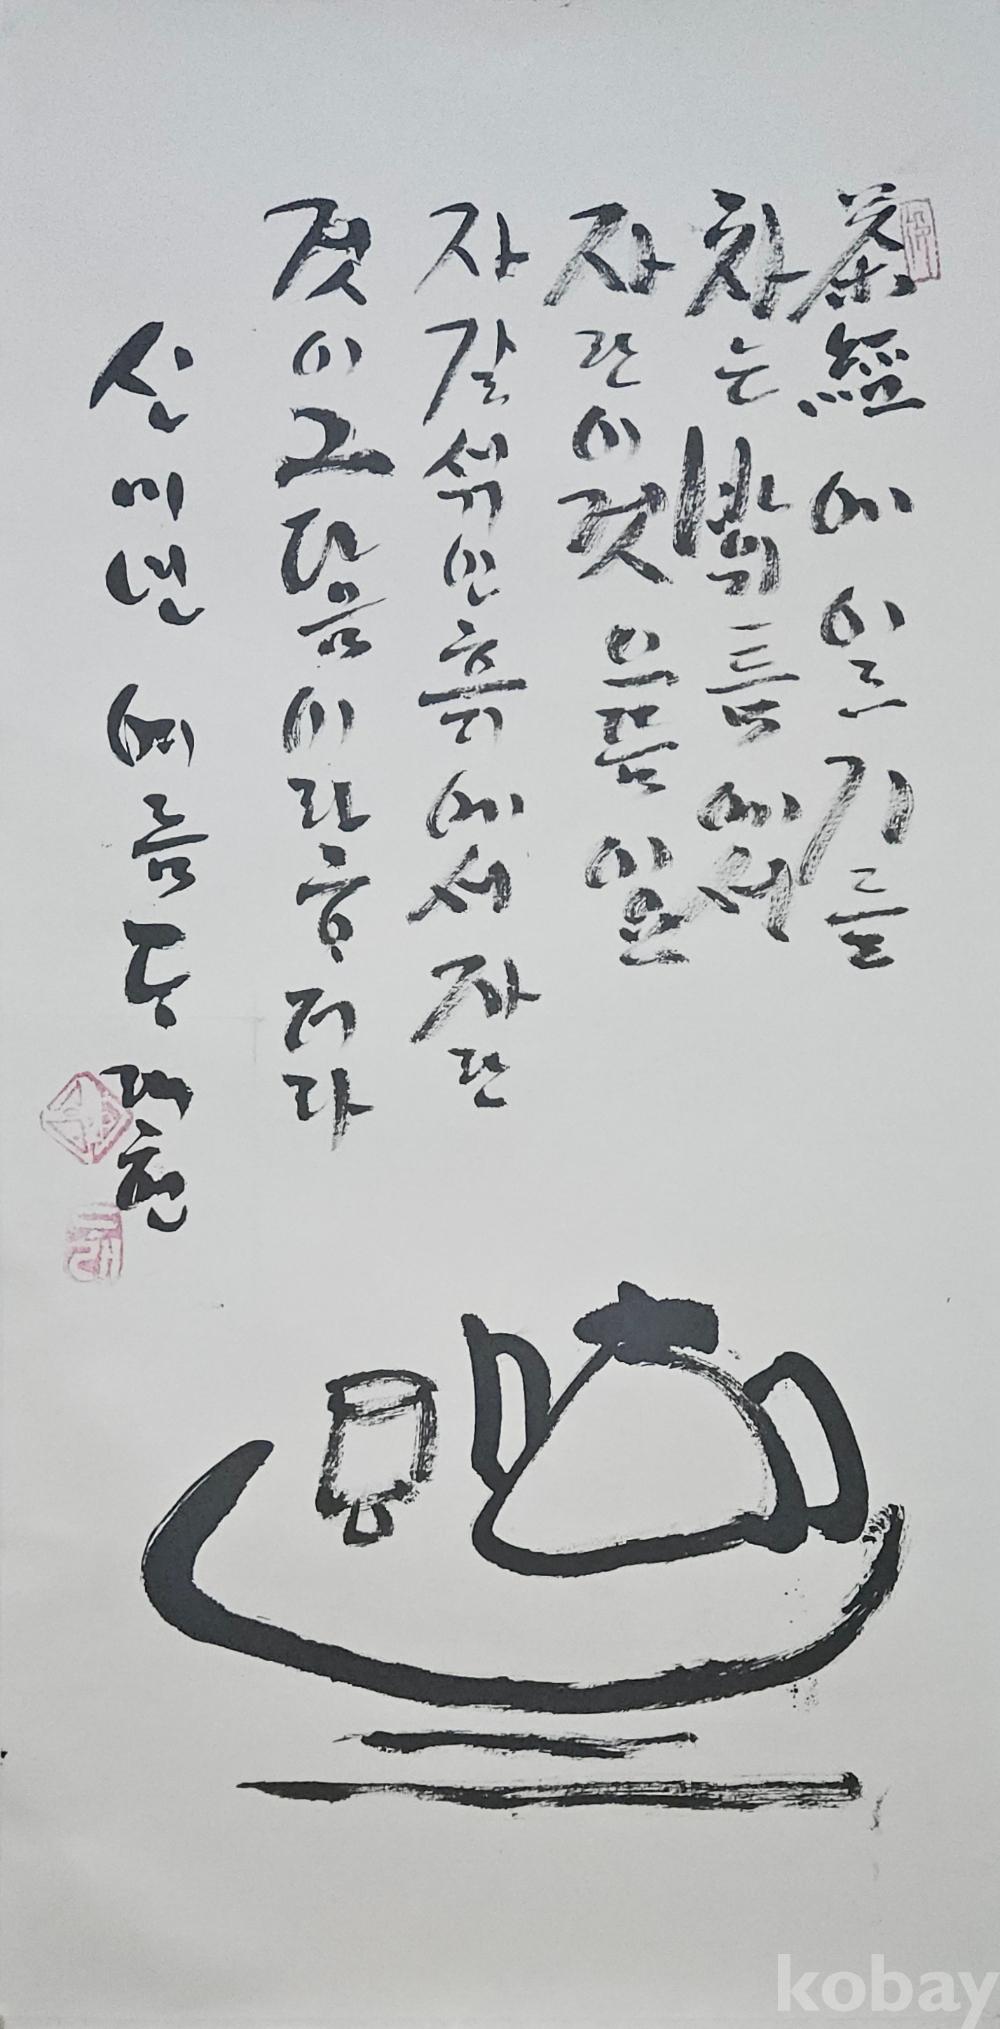 茶經에 이르기를
차는 바위틈에서
자란 이것 으뜸이요
자갈 섞인 흙에서 자란
것이 그 다음이라 ᄒᆞ더라
신미년 여름 ᄃᆞ래헌
kobay